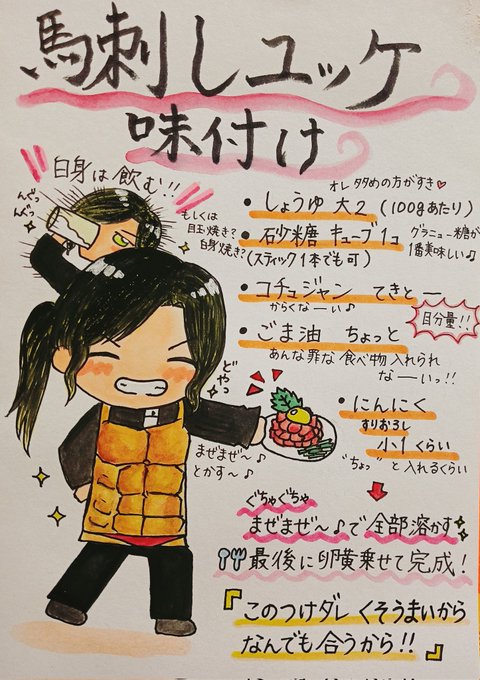 馬刺しユッケ
味付け
白身は飲む!!
んぐっ
んぐっ
もしくは
目玉焼き?
白身焼き?
オレ多めの方がすき♥
・しょうゆ 大2 (100gあたり)
・砂糖 キューブ1コ
(スティック1本でも可)
グラニュー糖が
1番美味しい♪
・コチュジャン てきとー
からくなーい♪
目分量!!
・ごま油 ちょっと
あんな罪な食べ物入れられ
なーいっ!!
どやっ
まぜまぜ〜♪
とかす〜♪
・にんにく
すりおろし
小1くらい
"ちょっ"と入れるくらい
ぐちゃぐちゃ
まぜまぜ〜♪で全部溶かす
最後に卵黄乗せて完成!
『このつけダレ くそうまいから
なんでも合うから!!』